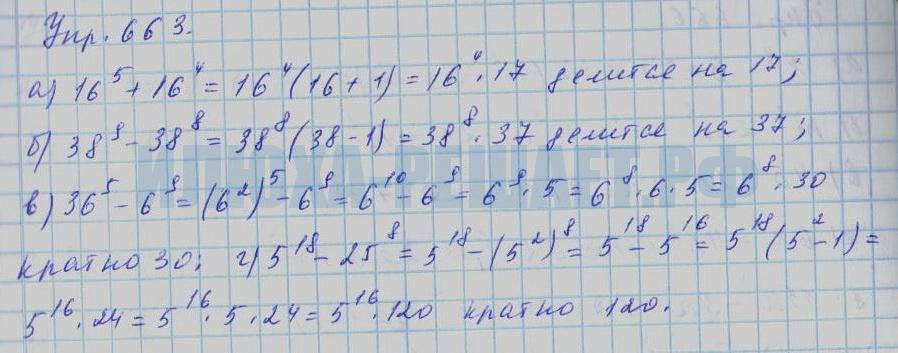 Упр. 663.
а) 16⁵ + 16⁴ = 16⁴(16 + 1) = 16⁴ · 17 делится на 17;
б) 38⁹ - 38⁸ = 38⁸(38 - 1) = 38⁸ · 37 делится на 37;
в) 36⁵ - 6⁹ = (6²)⁵ - 6⁹ = 6¹⁰ - 6⁹ = 6⁹ · 5 = 6⁸ · 6 · 5 = 6⁸ · 30
кратно 30; г) 5¹⁸ - 25⁸ = 5¹⁸ - (5²)⁸ = 5¹⁸ - 5¹⁶ = 5¹⁸(5² - 1) =
5¹⁶ · 24 = 5¹⁶ · 5 · 24 = 5¹⁶ · 120 кратно 120.